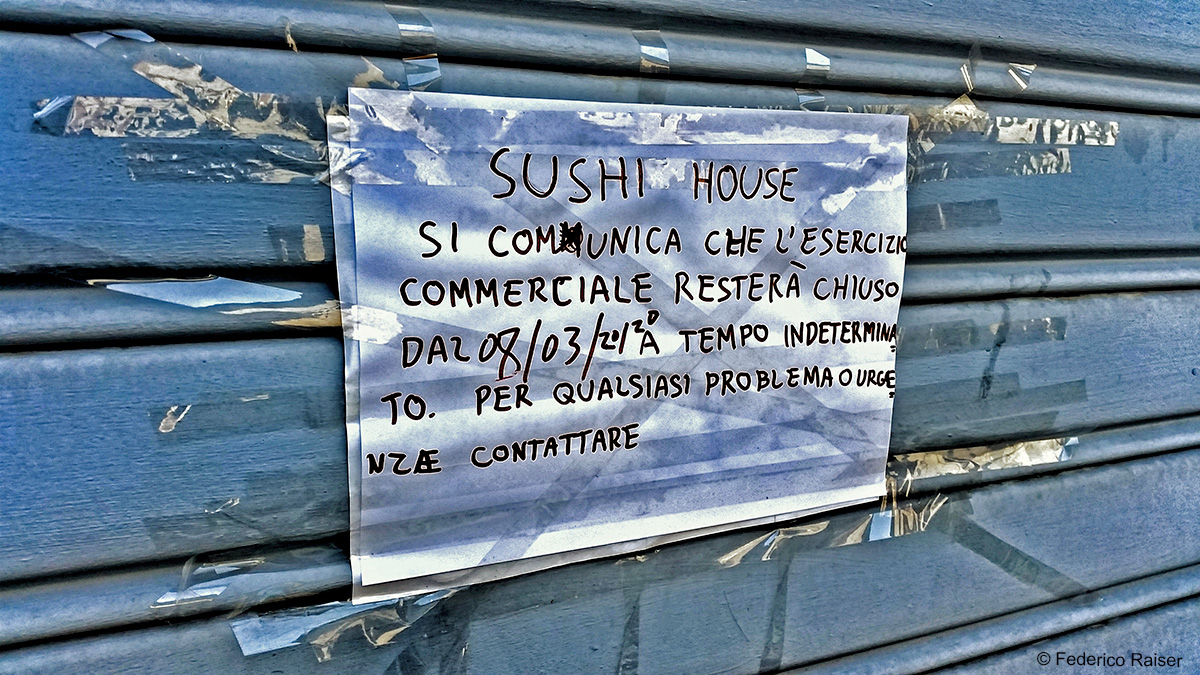 SUSHI HOUSE
SI COMUNICA CHE L'ESERCIZIO
COMMERCIALE RESTERÀ CHIUSO
DAL 08/03/2020 A TEMPO INDETERMINA
TO. PER QUALSIASI PROBLEMA O URGE
NZE CONTATTARE
© Federico Raiser